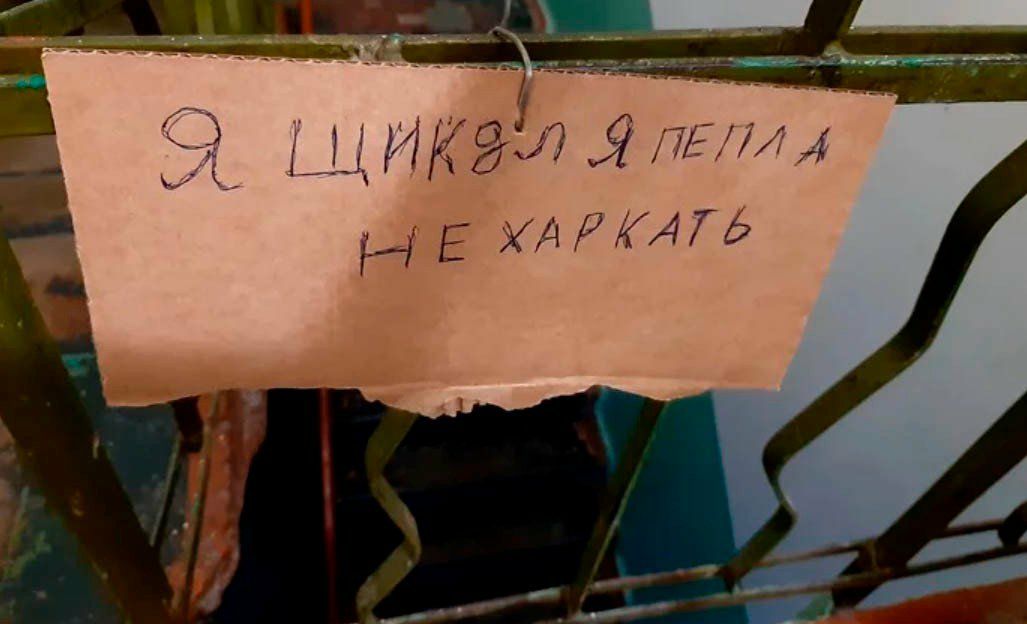 Я ЩИК ДЛЯ ПЕПЛА
НЕ ХАРКАТЬ